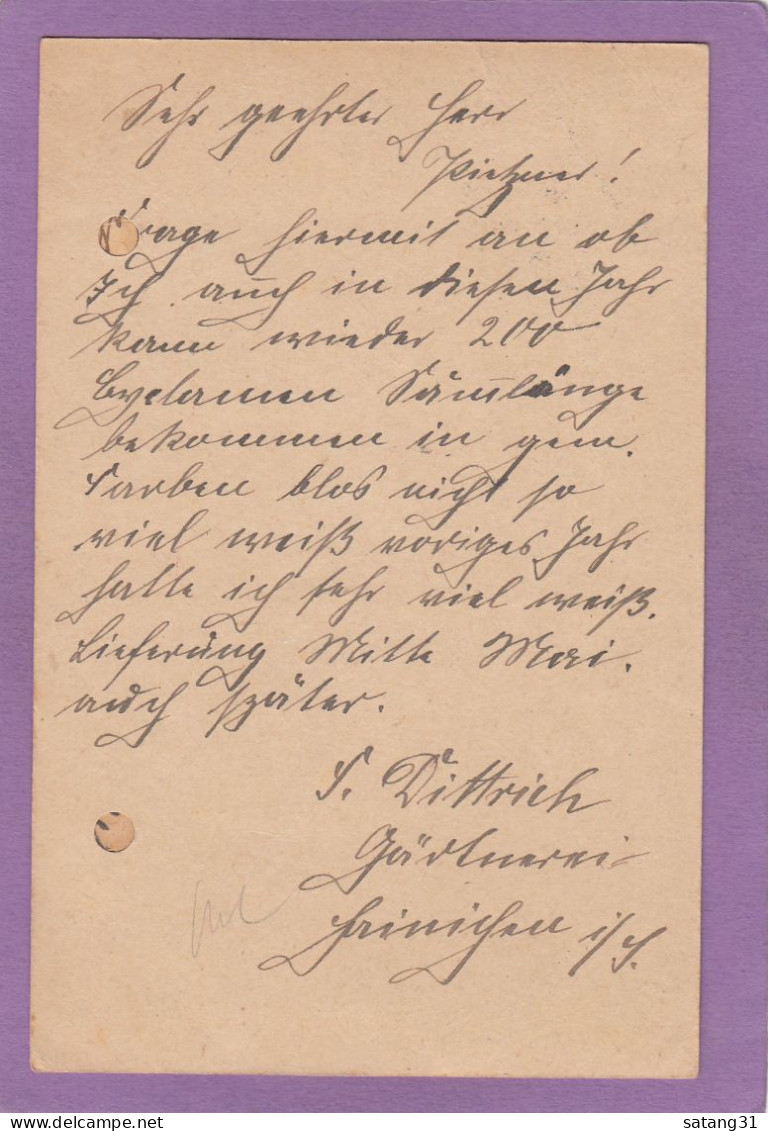 Sehr geehrter Herr
Pietzner!
Frage hiermit an ob
Ich auch in diesen Jahr
kann wieder 200
Cyclamen Sämlänge
bekommen in gem.
Farben blos nicht so
viel weiß voriges Jahr
hatte ich sehr viel weiß.
Lieferung Mitte Mai.
auch später.
F. Dittrich
Gärtnerei
Hainichen i/S.
satang31